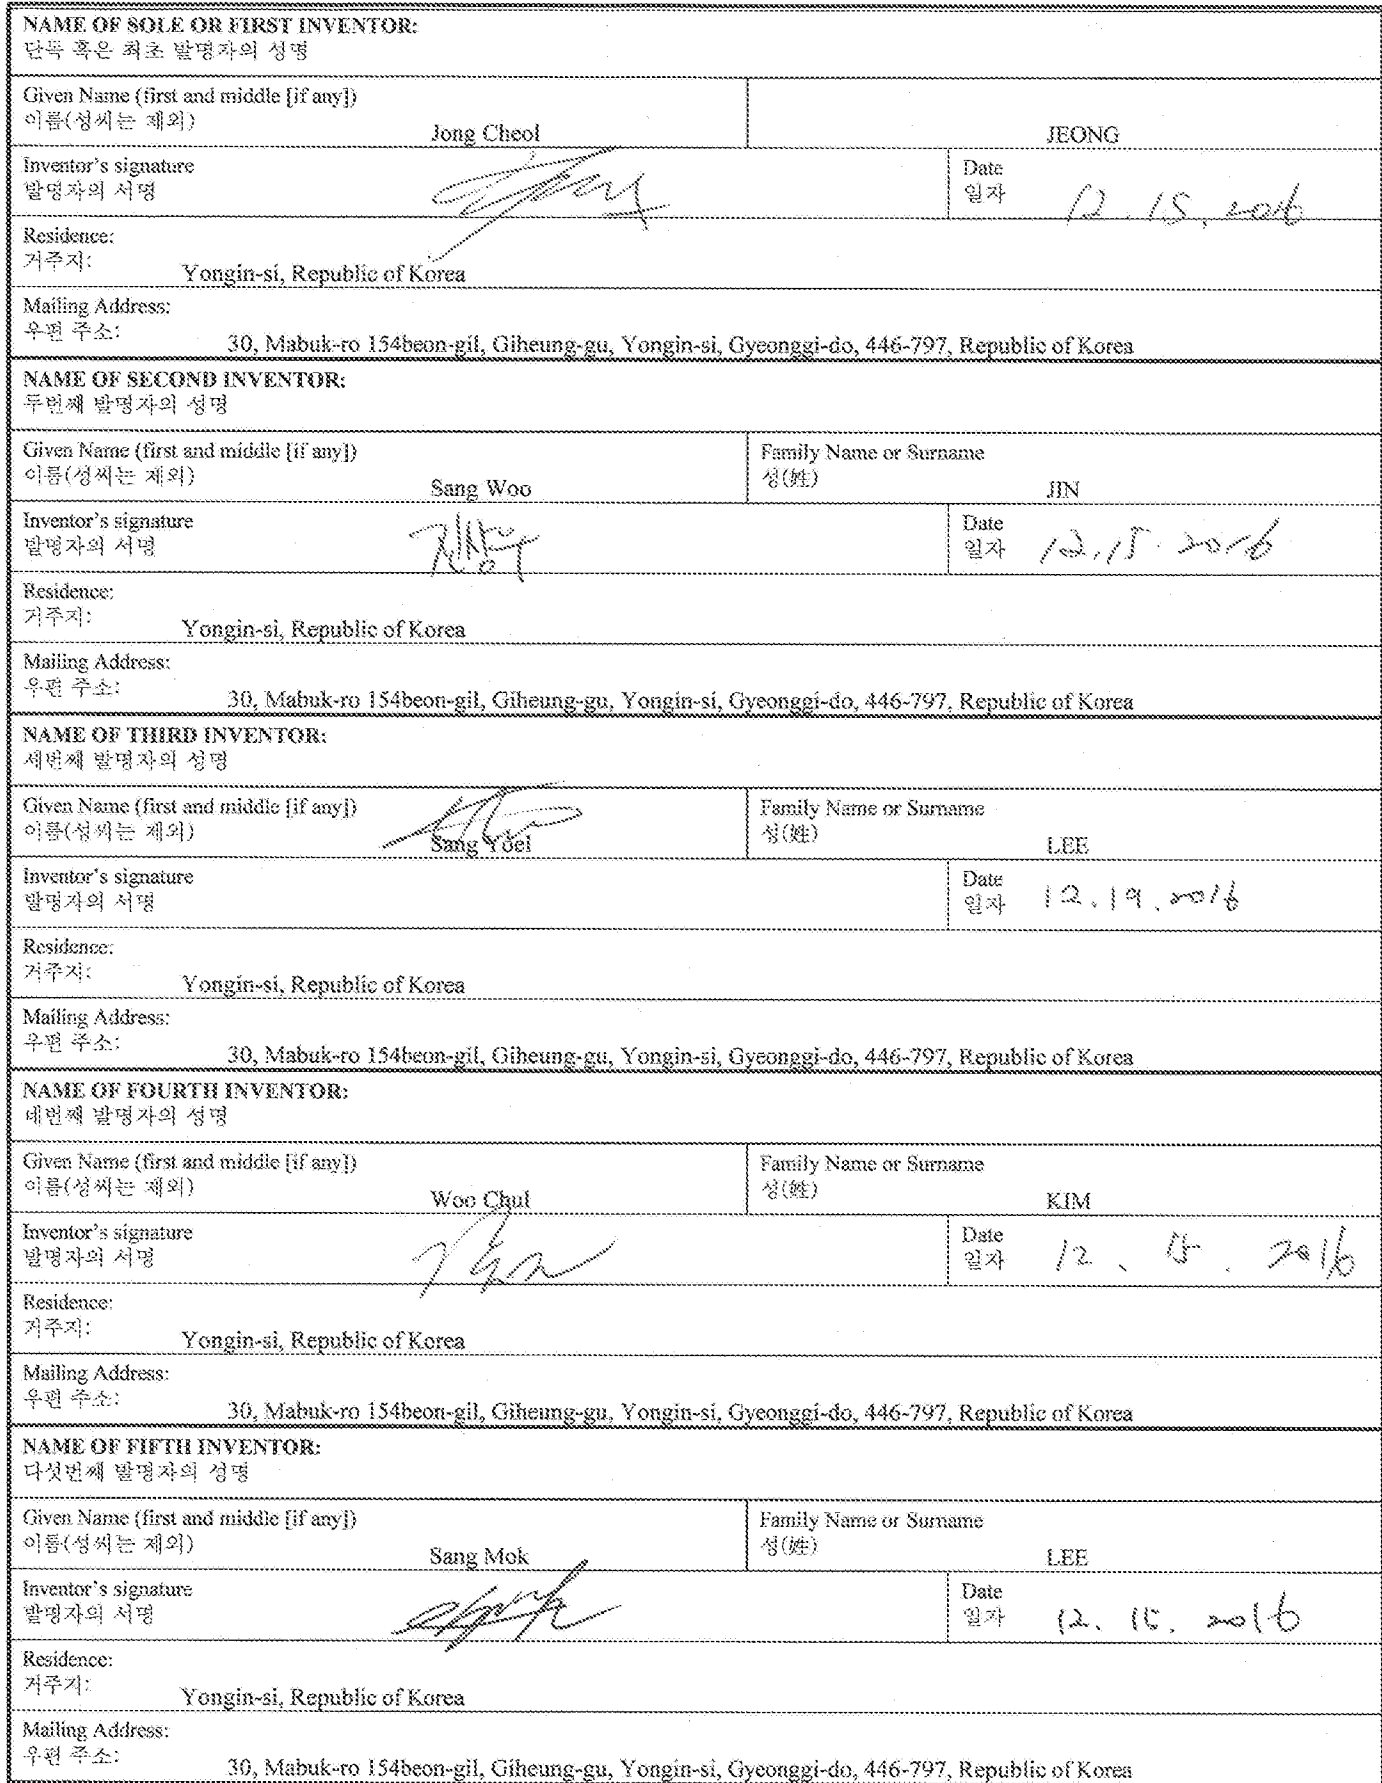 NAME OF SOLE OR FIRST INVENTOR:
단독 혹은 최초 발명자의 성명
Given Name (first and middle [if any])
이름(성씨는 제외)
Jong Cheol
JEONG
Inventor's signature
발명자의 서명
Date
일자
12. 15, 2016
Residence:
거주지:
Yongin-si, Republic of Korea
Mailing Address:
우편 주소:
30, Mabuk-ro 154beon-gil, Giheung-gu, Yongin-si, Gyeonggi-do, 446-797, Republic of Korea
NAME OF SECOND INVENTOR:
두번째 발명자의 성명
Given Name (first and middle [if any])
이름(성씨는 제외)
Sang Woo
Family Name or Surname
성(姓)
JIN
Inventor's signature
발명자의 서명
진상우
Date
일자
12, 15. 2016
Residence:
거주지:
Yongin-si, Republic of Korea
Mailing Address:
우편 주소:
30, Mabuk-ro 154beon-gil, Giheung-gu, Yongin-si, Gyeonggi-do, 446-797, Republic of Korea
NAME OF THIRD INVENTOR:
세번째 발명자의 성명
Given Name (first and middle [if any])
이름(성씨는 제외)
Sang Yoel
Family Name or Surname
성(姓)
LEE
Inventor's signature
발명자의 서명
Date
일자
12. 19. 2016
Residence:
거주지:
Yongin-si, Republic of Korea
Mailing Address:
우편 주소:
30, Mabuk-ro 154beon-gil, Giheung-gu, Yongin-si, Gyeonggi-do, 446-797, Republic of Korea
NAME OF FOURTH INVENTOR:
네번째 발명자의 성명
Given Name (first and middle [if any])
이름(성씨는 제외)
Woo Chul
Family Name or Surname
성(姓)
KIM
Inventor's signature
발명자의 서명
Date
일자
12. 15. 2016
Residence:
거주지:
Yongin-si, Republic of Korea
Mailing Address:
우편 주소:
30, Mabuk-ro 154beon-gil, Giheung-gu, Yongin-si, Gyeonggi-do, 446-797, Republic of Korea
NAME OF FIFTH INVENTOR:
다섯번째 발명자의 성명
Given Name (first and middle [if any])
이름(성씨는 제외)
Sang Mok
Family Name or Surname
성(姓)
LEE
Inventor's signature
발명자의 서명
Date
일자
12. 15. 2016
Residence:
거주지:
Yongin-si, Republic of Korea
Mailing Address:
우편 주소:
30, Mabuk-ro 154beon-gil, Giheung-gu, Yongin-si, Gyeonggi-do, 446-797, Republic of Korea